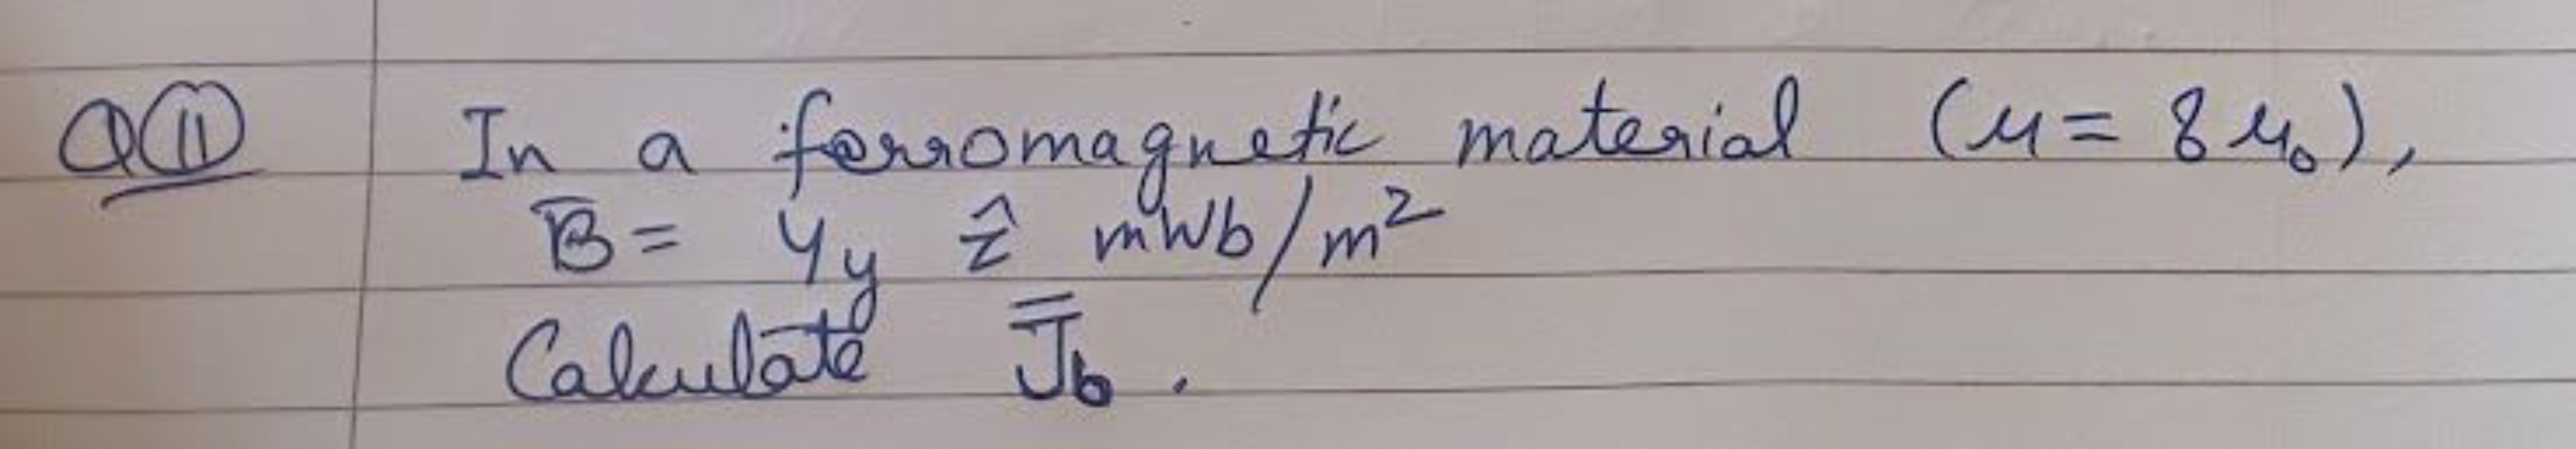 Q(11) In a ferromagnetic material (μ = 8μ₀),
B̄ = 4y ẑ mWb/m²
Calculate J̿b.